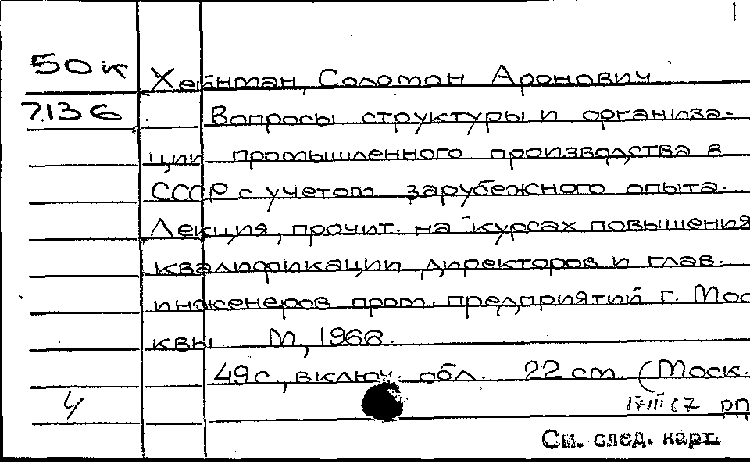 50к Хейнман, Соломон Аронович.
7136 Вопросы структуры и организа-
ции промышленного производства в
СССР с учетом зарубежного опыта.
Лекция, прочит. на курсах повышения
квалификации директоров и глав.
инженеров пром. предприятий г. Мос
квы М., 1966.
49 с., включ. обл. 22 см (Моск.
17 III 67 рп
См. след. карт.